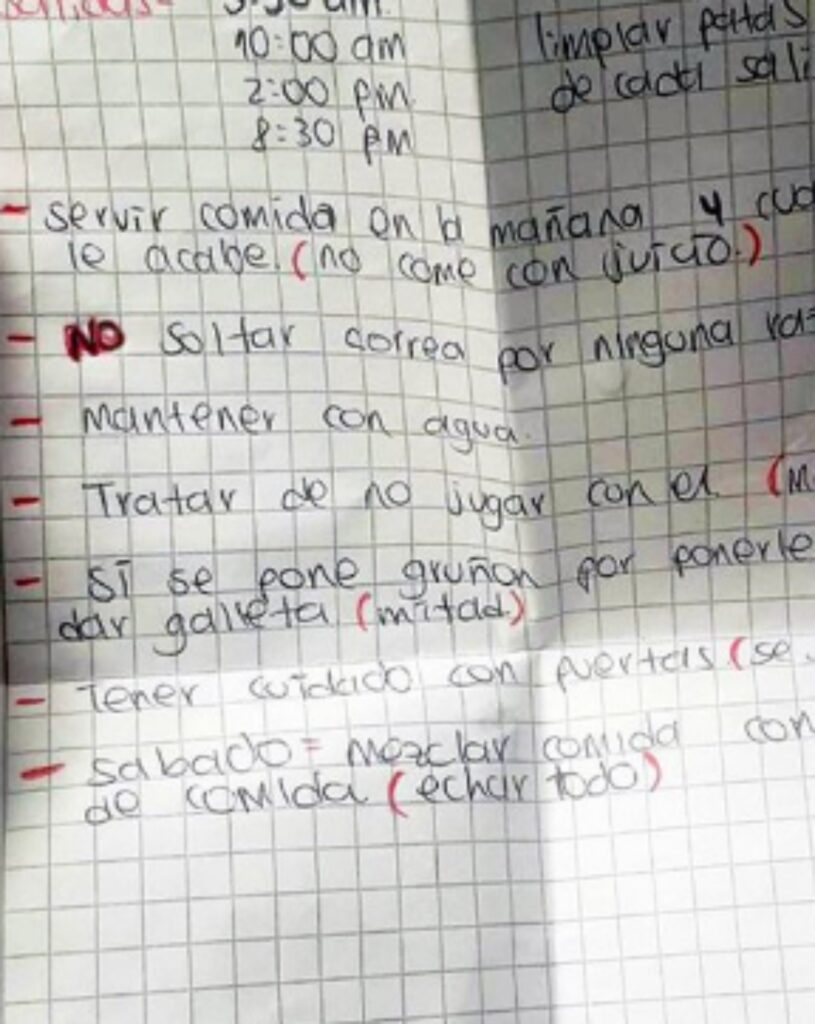 salidas- 5:30 am.
10:00 am
2:00 pm
8:30 pm
limpiar patas
de cada sali
- servir comida en la mañana y cua
le acabe. (no come con juicio.)
- NO soltar correa por ninguna raz
- mantener con agua.
- Tratar de no jugar con el (m
- Si se pone gruñon por ponerle
dar galleta (mitad)
- Tener cuidado con puertas (se
- sabado = mezclar comida con
de comida (echar todo)